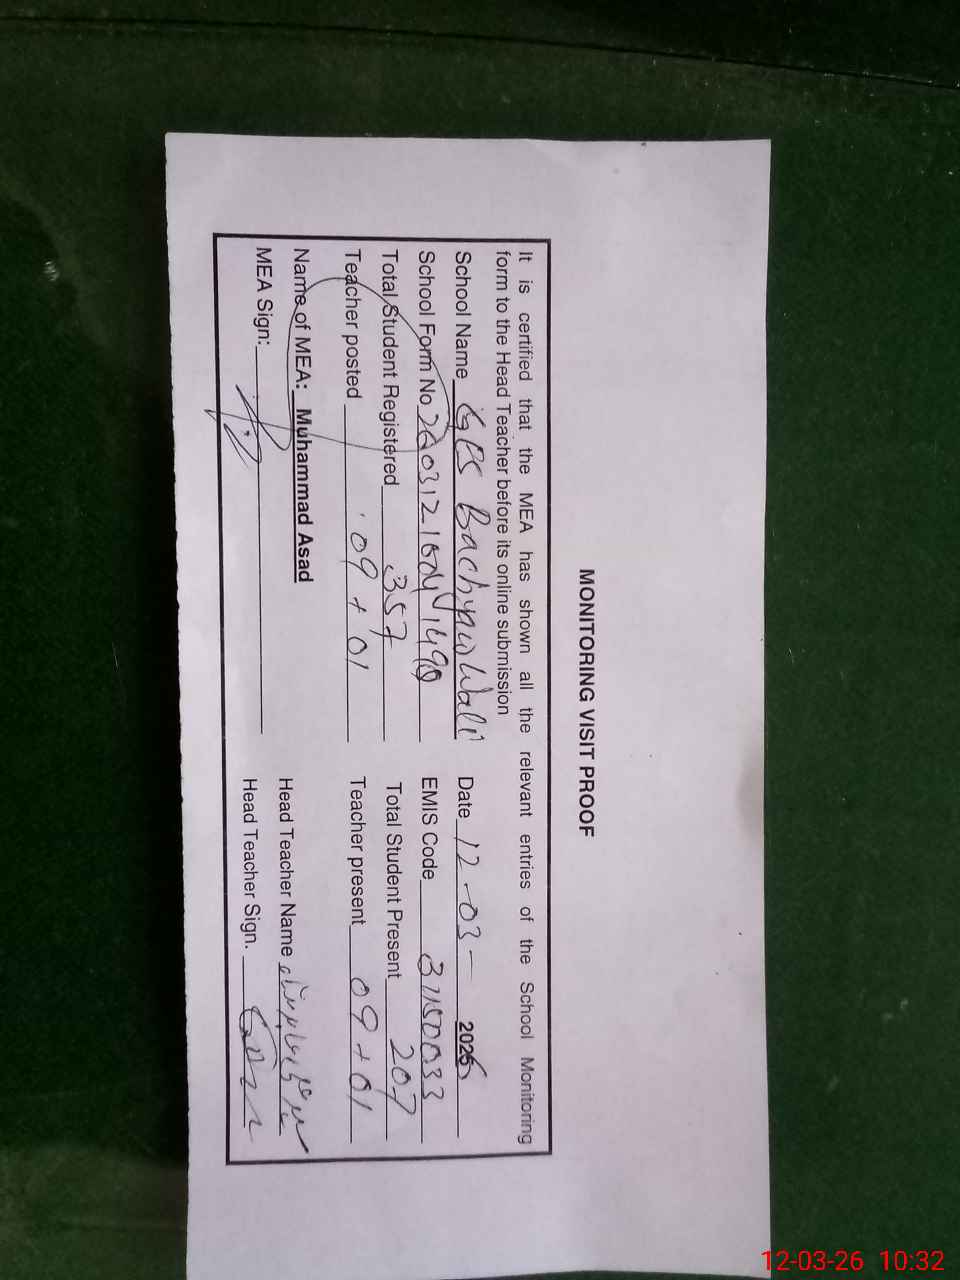 MONITORING VISIT PROOF
It is certified that the MEA has shown all the relevant entries of the School Monitoring
form to the Head Teacher before its online submission
School Name GPS Date 12-03-2026
School Form No EMIS Code
Total Student Registered 357 Total Student Present 207
Teacher posted 09 + 01 Teacher present 09 + 01
Name of MEA: Muhammad Asad Head Teacher Name
MEA Sign: Head Teacher Sign.
12-03-26 10:32